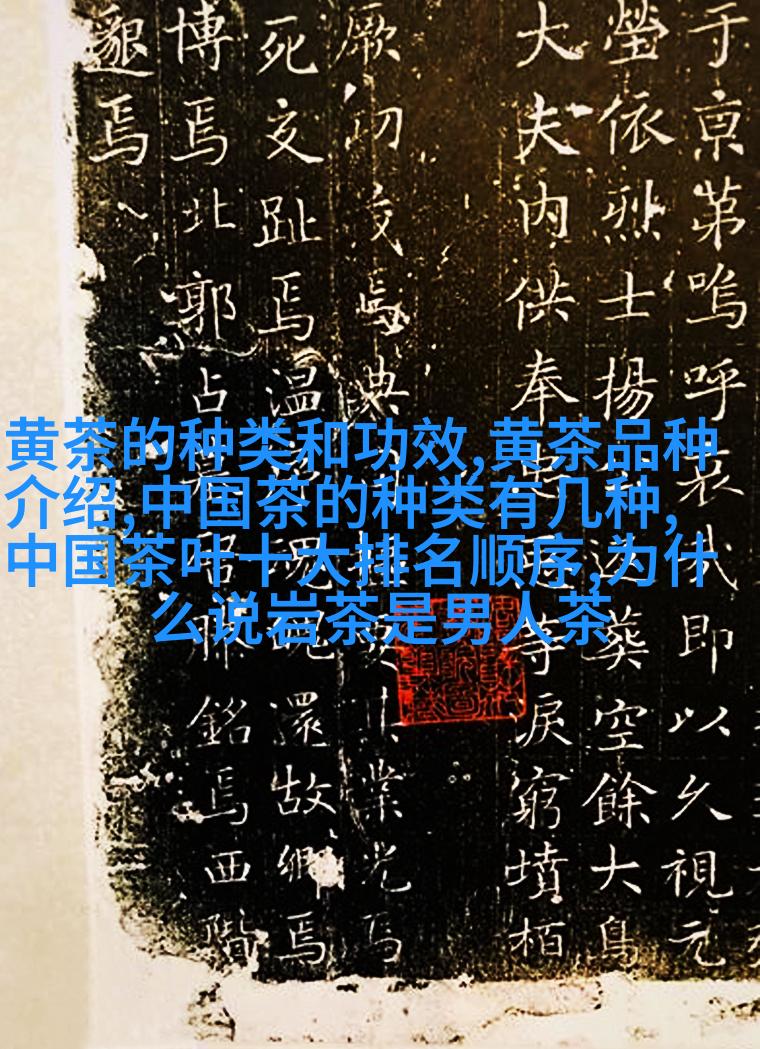 黄茶的种类和功效,黄茶品种
介绍,中国茶的种类有几种,
中国茶叶十大排名顺序,为什
么说岩茶是男人茶
于京第嗚呼哀哉即以久視元
塋依烈士揚葬空餘大鳥
大夫內供奉等淚窮墳栢
厥初交焉典業光焉
死交趾焉温魂還故鄉焉
博焉北郭占銘焉西階
邈焉